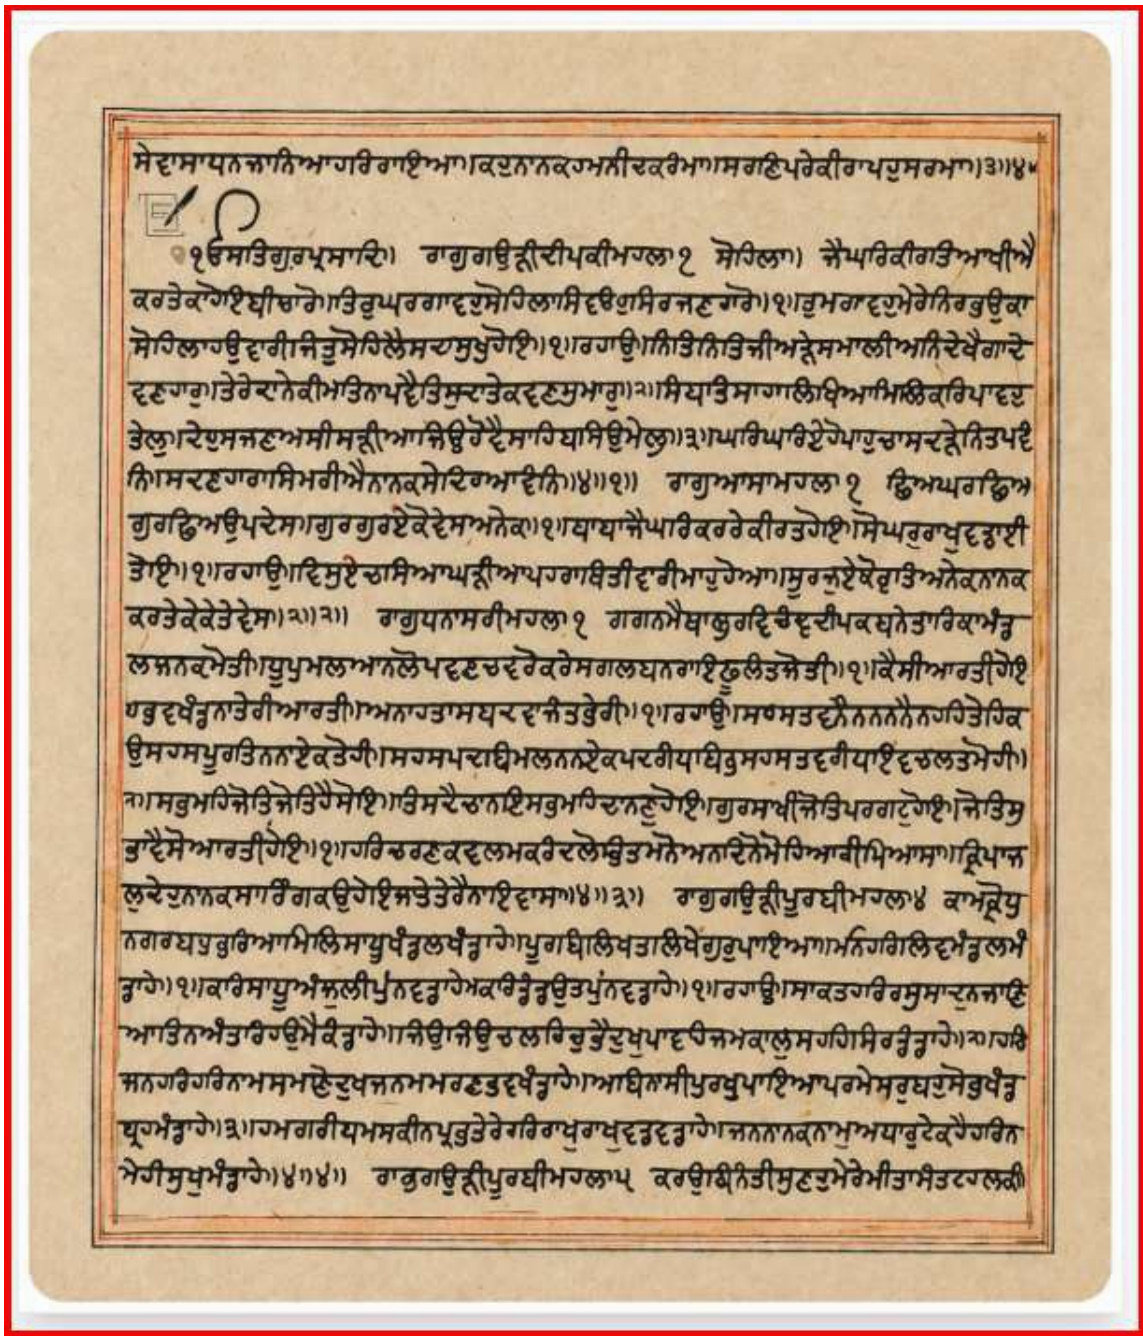 ਸੇਵਾਸਾਧਨਜਾਨਿਆਹਰਿਰਾਇਆ॥ਕਹੁਨਾਨਕਹਮਨੀਚਕਰੰਮਾ॥ਸਰਣਿਪਰੇਕੀਰਾਖਹੁਸਰਮਾ॥੨॥੪॥
ੴਸਤਿਗੁਰਪ੍ਰਸਾਦਿ॥ ਰਾਗੁਗਉੜੀਦੀਪਕੀਮਹਲਾ੧ ਸੋਹਿਲਾ॥ ਜੈਘਰਿਕੀਰਤਿਆਖੀਐ
ਕਰਤੇਕਾਹੋਇਬੀਚਾਰੋ॥ਤਿਤੁਘਰਗਾਵਹੁਸੋਹਿਲਾਸਿਵਰਹੁਸਿਰਜਣਹਾਰੋ॥੧॥ਤੁਮਗਾਵਹੁਮੇਰੇਨਿਰਭਉਕਾ
ਸੋਹਿਲਾਹਉਵਾਰੀਜਿਤੁਸੋਹਿਲੈਸਦਾਸੁਖੁਹੋਇ॥੧॥ਰਹਾਉ॥ਨਿਤਿਨਿਤਿਜੀਅੜੇਸਮਾਲੀਅਨਿਦੇਖੈਗਾਦੇ
ਵਣਹਾਰੁ॥ਤੇਰੇਦਾਨੇਕੀਮਤਿਨਾਪਵੈਤਿਸੁਦਾਤੇਕਵਣਸੁਮਾਰੁ॥੨॥ਸੰਬਾਤਿਸਾਹਾਲਿਖਿਆਮਿਲਿਕਰਿਪਾਵਹੁ
ਤੇਲੁ॥ਦੇਹੁਸਜਣਅਸੀਸੜੀਆਜਿਉਹੋਵੈਸਾਹਿਬਸਿਉਮੇਲੁ॥੩॥ਘਰਿਘਰਿਏਹੋਪਾਹੁਚਾਸਦੜੇਨਿਤਪਵੰ
ਨਿ॥ਸਦਣਹਾਰਾਸਿਮਰੀਐਨਾਨਕਸੇਦਿਹਆਵੰਨਿ॥੪॥੧॥ ਰਾਗੁਆਸਾਮਹਲਾ੧ ਛਿਅਘਰਛਿਅ
ਗੁਰਛਿਅਉਪਦੇਸ॥ਗੁਰਗੁਰਏਕੋਵੇਸਅਨੇਕ॥੧॥ਬਾਬਾਜੈਘਰਿਕਰਤੇਕੀਰਤਿਹੋਇ॥ਸੋਘਰੁਰਾਖੁਵਡਾਈ
ਤੋਇ॥੧॥ਰਹਾਉ॥ਵਿਸੁਏਚਸਿਆਘੜੀਆਪਹਰਾਥਿਤੀਵਾਰੀਮਾਹੁਹੋਆ॥ਸੂਰਜੁਏਕੋਰੁਤਿਅਨੇਕਨਾਨਕ
ਕਰਤੇਕੇਕੇਤੇਵੇਸ॥੨॥੨॥ ਰਾਗੁਧਨਾਸਰੀਮਹਲਾ੧ ਗਗਨਮੈਥਾਲੁਰਵਿਚੰਦੁਦੀਪਕਬਨੇਤਾਰਿਕਾਮੰਡ
ਲਜਨਕਮੋਤੀ॥ਧੂਪੁਮਲਆਨਲੋਪਵਣਚਵਰੋਕਰੇਸਗਲਬਨਰਾਇਫੂਲੰਤਜੋਤੀ॥੧॥ਕੈਸੀਆਰਤੀਹੋਇ
ਭਵਖੰਡਨਾਤੇਰੀਆਰਤੀ॥ਅਨਾਹਤਾਸਬਦਵਾਜੰਤਭੇਰੀ॥੧॥ਰਹਾਉ॥ਸਹਸਤਵਨੈਨਨਨਨੈਨਹਹਿਤੋਹਿਕ
ਉਸਹਸਮੂਰਤਿਨਨਾਏਕਤੋਹੀ॥ਸਹਸਪਦਬਿਮਲਨਨਏਕਪਦਗੰਧਬਿਨੁਸਹਸਤਵਗੰਧਇਵਚਲਤਮੋਹੀ॥
੨॥ਸਭਮਹਿਜੋਤਿਜੋਤਿਹੈਸੋਇ॥ਤਿਸਦੈਚਾਨਇਸਭਮਹਿਚਾਨਣੁਹੋਇ॥ਗੁਰਸਾਖੀਜੋਤਿਪਰਗਟੁਹੋਇ॥ਜੋਤਿਸੁ
ਭਾਵੈਸੋਆਰਤੀਹੋਇ॥੩॥ਹਰਿਚਰਣਕਵਲਮਕਰੰਦਲੋਭਿਤਮਨੋਅਨਦਿਨੋਮੋਹਿਆਹੀਪਿਆਸਾ॥ਕ੍ਰਿਪਾਜ
ਲੁਦੇਹੁਨਾਨਕਸਾਰਿੰਗਕਉਹੋਇਜਾਤੇਤੇਰੈਨਾਇਵਾਸਾ॥੪॥੩॥ ਰਾਗੁਗਉੜੀਪੂਰਬੀਮਹਲਾ੪ ਕਾਮਕ੍ਰੋਧੁ
ਨਗਰਬਹੁਭਰਿਆਮਿਲਿਸਾਧੂਖੰਡਲਖੰਡਾਹੇ॥ਪੂਰਬਿਲਿਖਤਲਿਖੇਗੁਰੁਪਾਇਆ॥ਮਨਿਹਰਿਲਿਵਮੰਡਲਮੰ
ਡਾਹੇ॥੧॥ਕਰਿਸਾਧੂਅੰਜੁਲੀਪੁੰਨਵਡਾਹੇ॥ਕਰਿਡੰਡਉਤਪੁੰਨਵਡਾਹੇ॥੧॥ਰਹਾਉ॥ਸਾਕਤਹਰਿਰਸੁਸਾਦੁਨਜਾਣਿ
ਆਤਿਨਅੰਤਰਿਹਉਮੈਕੰਡਾਹੇ॥ਜਿਉਜਿਉਚਲਹਿਚੁਭੈਦੁਖੁਪਾਵਹਿਜਮਕਾਲੁਸਹਹਿਸਿਰਡੰਡਾਹੇ॥੨॥ਹਰਿ
ਜਨਹਰਿਹਰਿਨਾਮਸਮਾਣੇਦੁਖਜਨਮਮਰਣਭਵਖੰਡਾਹੇ॥ਅਬਿਨਾਸੀਪੁਰਖੁਪਾਇਆਪਰਮੇਸਰੁਬਹੁਸੋਭਖੰਡ
ਬ੍ਰਹਮੰਡਾਹੇ॥੩॥ਹਮਗਰੀਬਮਸਕੀਨਪ੍ਰਭੁਤੇਰੇਹਰਿਰਾਖੁਰਾਖੁਵਡਵਡਾਹੇ॥ਜਨਨਾਨਕਨਾਮੁਅਧਾਰੁਟੇਕਹੈਹਰਿਨ
ਮੇਹੀਸੁਖੁਮੰਡਾਹੇ॥੪॥੪॥ ਰਾਗੁਗਉੜੀਪੂਰਬੀਮਹਲਾ੫ ਕਰਉਬੇਨੰਤੀਸੁਣਹੁਮੇਰੇਮੀਤਾਸੰਤਟਹਲਕੀ